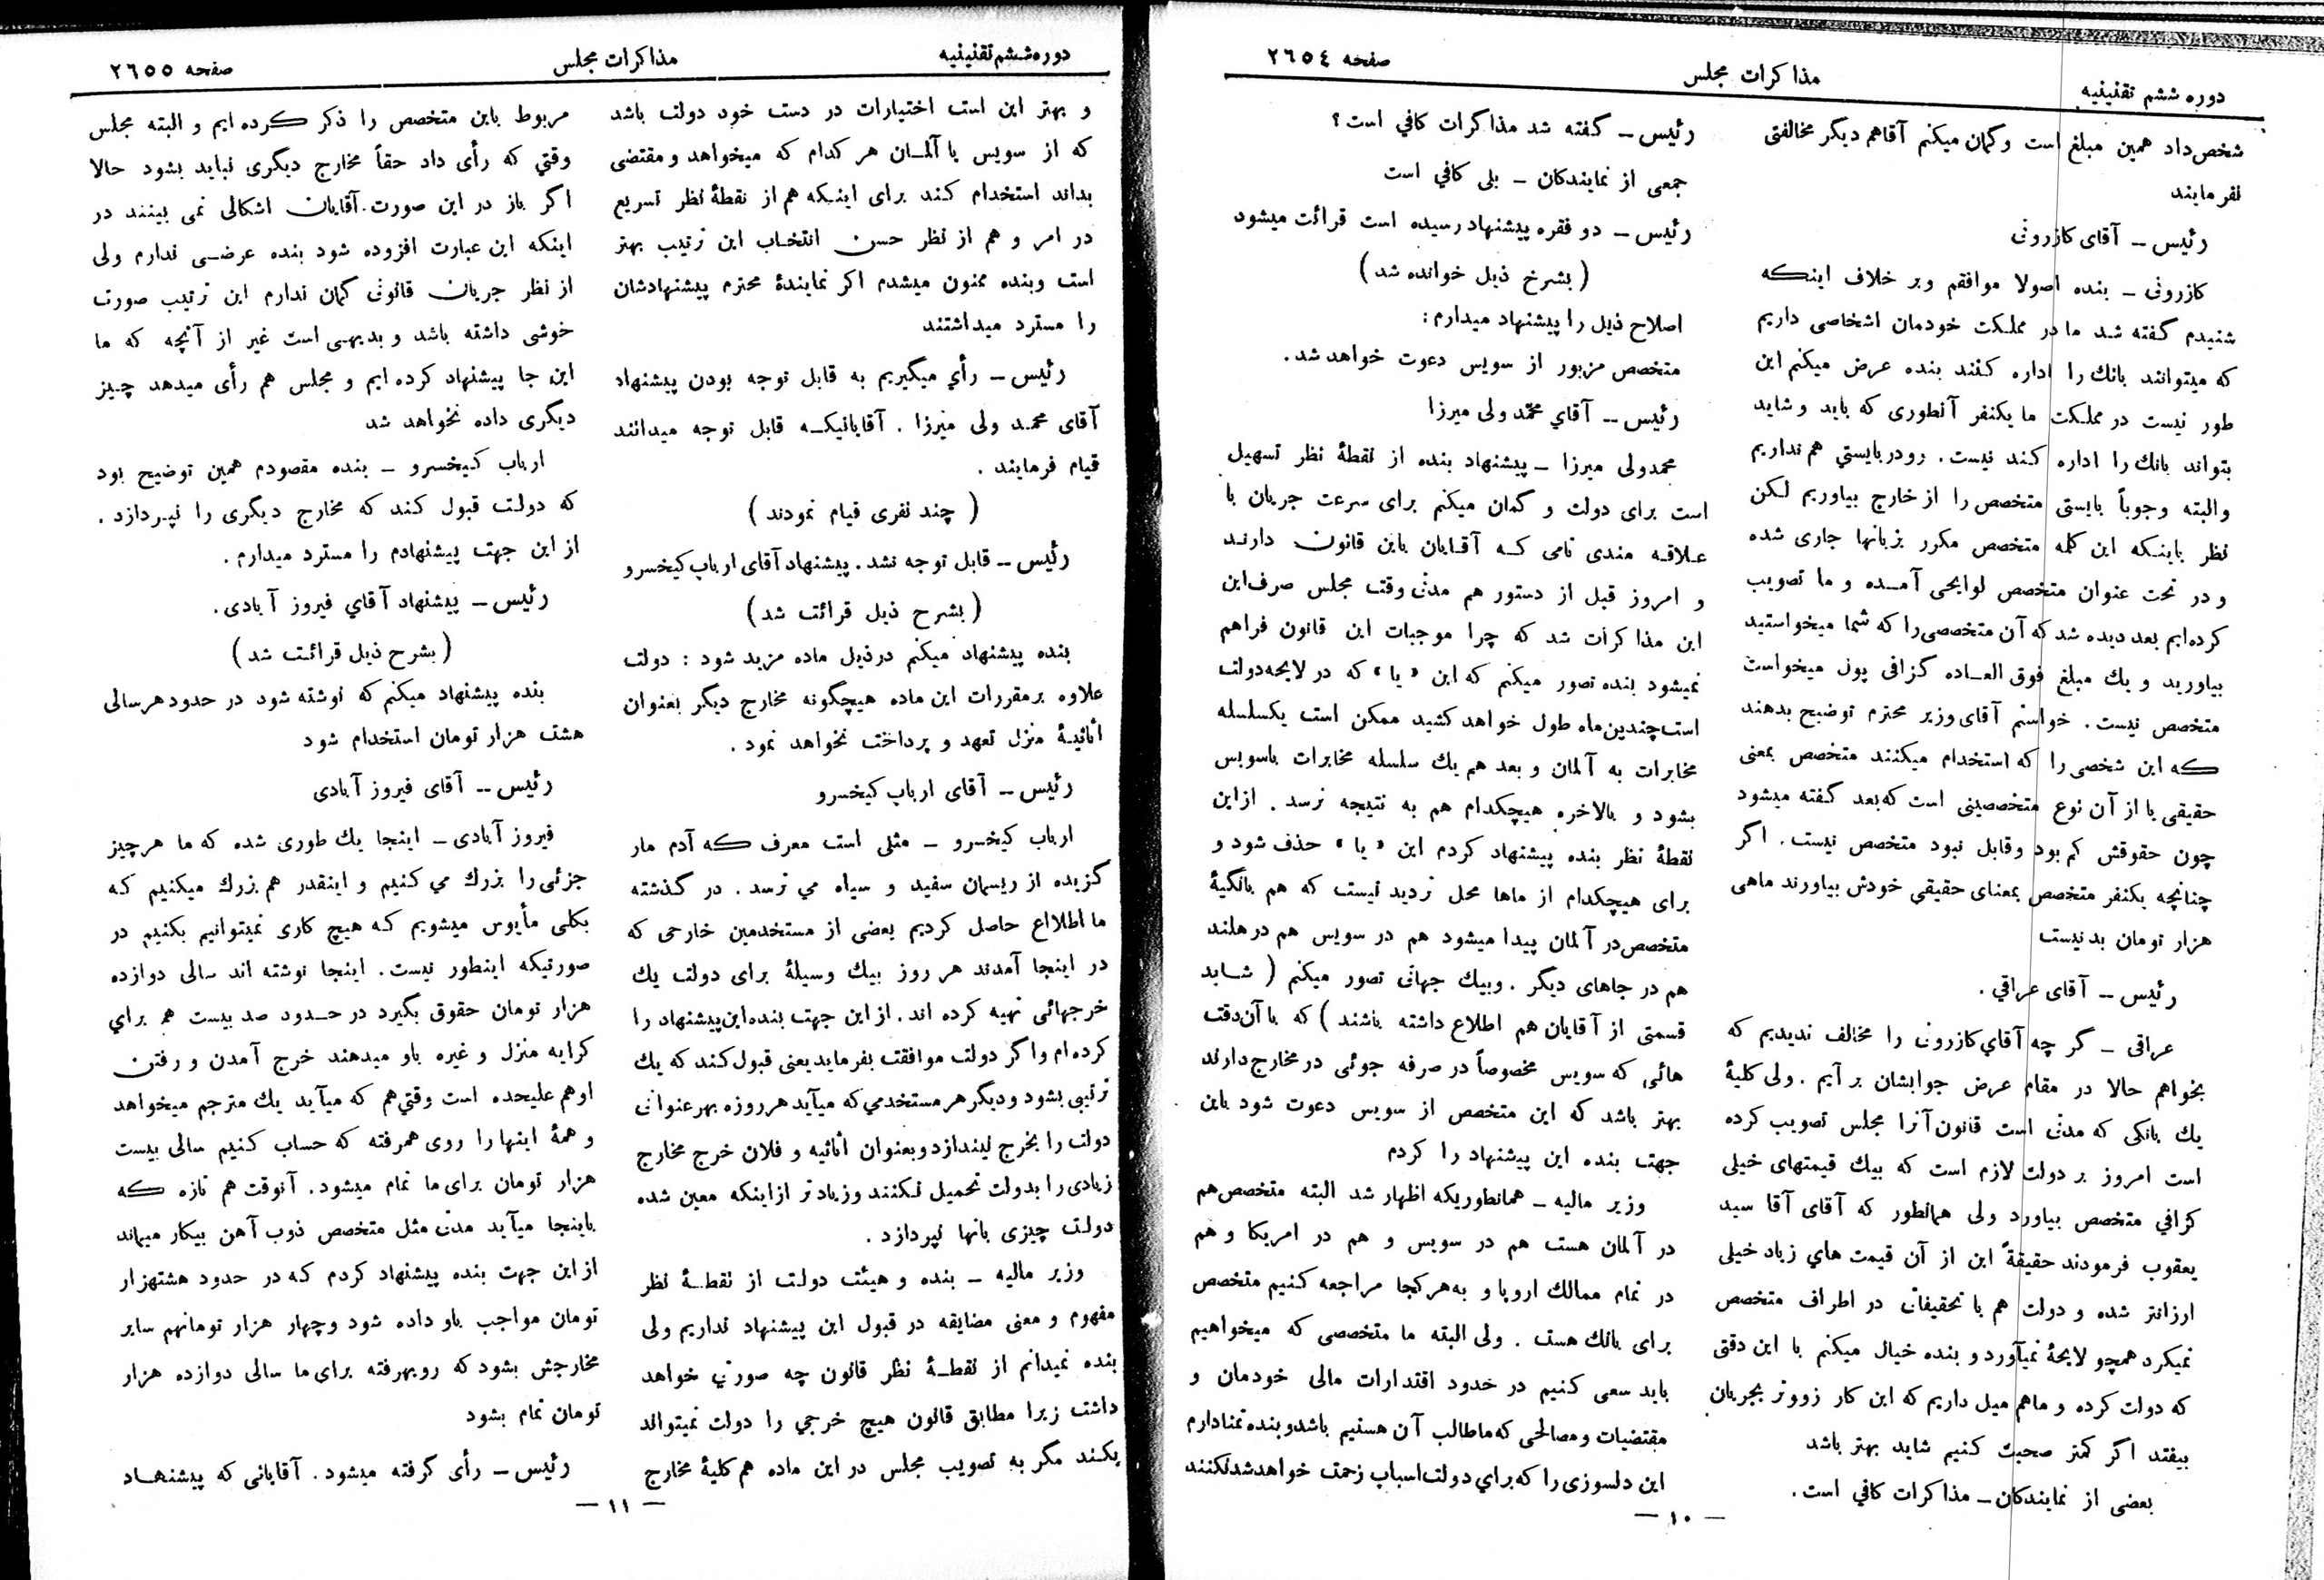 دوره ششم تقنینیه
مذاکرات مجلس
صفحه ٢٦٥٤
شخص داد همین مبلغ است وگمان میکنم آقاهم دیگر مخالفتی
نفرمایند
رئیس – آقای کازرونی
کازرونی – بنده اصولا موافقم وبر خلاف اینکه
شنیدم گفته شد ما در مملکت خودمان اشخاصی داریم
که میتوانند بانك را اداره کنند بنده عرض میکنم این
طور نیست در مملکت ما یکنفر آنطوری که باید و شاید
بتواند بانك را اداره کند نیست. رودربایستي هم نداریم
والبته وجوباً بایستی متخصص را از خارج بیاوریم لکن
نظر باینکه این کلمه متخصص مکرر بزبانها جاری شده
و در تحت عنوان متخصص لوایحی آمده و ما تصویب
کرده‌ایم بعد دیده شد که آن متخصصی را که شما میخواستید
بیاورید و یك مبلغ فوق العاده گزافی پول میخواست
متخصص نیست. خواستم آقای وزیر محترم توضیح بدهند
که این شخصی را که استخدام میکنند متخصص بمعنی
حقیقی یا از آن نوع متخصصینی است که بعد گفته میشود
چون حقوقش کم بود وقابل نبود متخصص نیست. اگر
چنانچه یکنفر متخصص بمعنای حقیقي خودش بیاورند ماهی
هزار تومان بد نیست
رئیس – آقای عراقي.
عراقی – گر چه آقاي کازرونی را مخالف ندیدیم که
بخواهم حالا در مقام عرض جوابشان بر آیم. ولی کلیهٔ
یك بانکی که مدتی است قانون آنرا مجلس تصویب کرده
است امروز بر دولت لازم است که بیك قیمتهای خیلی
گرافي متخصص بیاورد ولی همانطور که آقای آقا سید
یعقوب فرمودند حقیقةً این از آن قیمت هاي زیاد خیلی
ارزانتر شده و دولت هم با تحقیقاتی در اطراف متخصص
نمیکرد همچو لایحهٔ نمیآورد و بنده خیال میکنم با این دقتی
که دولت کرده و ماهم میل داریم که این کار زودتر بجریان
بیفتد اگر کمتر صحبت کنیم شاید بهتر باشد
بعضی از نمایندکان – مذاکرات کافي است.
رئیس – گفته شد مذاکرات کافي است؟
جمعی از نمایندکان – بلی کافي است
رئیس – دو فقره پیشنهاد رسیده است قرائت میشود
(بشرخ ذیل خوانده شد)
اصلاح ذیل را پیشنهاد میدارم:
متخصص مزبور از سویس دعوت خواهد شد.
رئیس – آقاي محمّد ولی میرزا
محمدولی میرزا – پیشنهاد بنده از نقطهٔ نظر تسهیل
است برای دولت و گمان میکنم برای سرعت جریان با
علاقه مندی تامی که آقایان باین قانون دارند
و امروز قبل از دستور هم مدتی وقت مجلس صرف این
این مذاکرات شد که چرا موجبات این قانون فراهم
نمیشود بنده تصور میکنم که این «یا» که در لایحه دولت
است چندین ماه طول خواهد کشید ممکن است یکسلسله
مخابرات به آلمان و بعد هم یك سلسله مخابرات باسویس
بشود و بالاخره هیچکدام هم به نتیجه نرسد. ازاین
نقطهٔ نظر بنده پیشنهاد کردم این «یا» حذف شود و
برای هیچکدام از ماها محل تردید نیست که هم بانگیهٔ
متخصص در آلمان پیدا میشود هم در سویس هم در هلند
هم در جاهای دیگر. وبیك جهاتی تصور میکنم (شاید
قسمتی از آقایان هم اطلاع داشته باشند) که با آن دقت
هائی که سویس مخصوصاً در صرفه جوئی در مخارج دارند
بهتر باشد که این متخصص از سویس دعوت شود باین
جهت بنده این پیشنهاد را کردم
وزیر مالیه – همانطوریکه اظهار شد البته متخصص هم
در آلمان هست هم در سویس و هم در امریکا و هم
در تمام ممالك اروپا و به هرکجا مراجعه کنیم متخصص
برای بانك هست. ولی البته ما متخصصی که میخواهیم
باید سعی کنیم در خدود اقتدارات مالی خودمان و
مقتضیات و مصالحی که ما طالب آن هستیم باشد و بنده تمنادارم
این دلسوزی را که براي دولت اسباب زحمت خواهد شد نکنند
– ۱۰ –
دوره ششم تقنینیه
مذاکرات مجلس
صفحه ٢٦٥٥
و بهتر این است اختیارات در دست خود دولت باشد
که از سویس یا آلمان هر کدام که میخواهد و مقتضی
بداند استخدام کند برای اینکه هم از نقطهٔ نظر تسریع
در امر و هم از نظر حسن انتخاب این ترتیب بهتر
است وبنده ممنون میشدم اکر نمایندهٔ محترم پیشنهادشان
را مسترد میداشتند
رئیس – رأي میگیریم به قابل توجه بودن پیشنهاد
آقای محمد ولی میرزا. آقایانیکه قابل توجه میدانند
قیام فرمایند.
(چند نفری قیام نمودند)
رئیس – قابل توجه نشد. پیشنهاد آقای ارباب کیخسرو
(بشرح ذیل قرائت شد)
بنده پیشنهاد میکنم در ذیل ماده مزید شود: دولت
علاوه بر مقررات این ماده هیچگونه مخارج دیگر بعنوان
أثاثیهٔ منزل تعهد و پرداخت نخواهد نمود.
رئیس – آقای ارباب کیخسرو
ارباب کیخسرو – مثلی است معرف که آدم مار
گزیده از ریسمان سفید و سیاه می ترسد. در گذشته
ما اطلااع حاصل کردیم بعضی از مستخدمین خارحی که
در اینجا آمدند هر روز بیك وسیلهٔ برای دولت یك
خرجهائی تهیه کرده اند. از این جهت بنده این پیشنهاد را
کرده‌ام واگر دولت موافقت بفرماید یعنی قبول کند که یك
ترتیبی بشود و دیگر هر مستخدمي که میآید هر روزه بهر عنوانی
دولت را بخرج نیندازد و بعنوان اثاثیه و فلان خرج مخارج
زیادی را بدولت تحمیل نکنند وزیادتر از اینکه معین شده
دولت چیزی بانها نپردازد.
وزیر مالیه – بنده و هیئت دولت از نقطهٔ نظر
مفهوم و معنی مضایقه در قبول این پیشنهاد نداریم ولی
بنده نمیدانم از نقطهٔ نظر قانون چه صورتی خواهد
داشت زیرا مطابق قانون هیچ خرجی را دولت نمیتواند
بکند مگر به تصویب مجلس در این ماده هم کلیهٔ مخارج
مربوط باین متخصص را ذکر کرده‌ایم و البته مجلس
وقتي که رأی داد حقاً مخارج دیگری نباید بشود حالا
اگر باز در این صورت آقایان اشکالی نمی بینند در
اینکه این عبارت افزوده شود بنده عرضی ندارم ولی
از نظر جریان قانونی گمان ندارم این ترتیب صورت
خوشی داشته باشد و بدیهی است غیر از آنچه که ما
این جا پیشنهاد کرده‌ایم و مجلس هم رأی میدهد چیز
دیگری داده نخواهد شد
ارباب کیخسرو – بنده مقصودم همین توضیح بود
که دولت قبول کند که مخارج دیگری را نپردازد.
از این جهت پیشنهادم را مسترد میدارم.
رئیس – پیشنهاد آقاي فیروز آبادی.
(بشرح ذیل قرائت شد)
بنده پیشنهاد میکنم که نوشته شود در حدود هرسالی
هشت هزار تومان استخدام شود
رئیس – آقای فیروز آبادی
فیروز آبادی – اینجا یك طوری شده که ما هرچیز
جزئی را بزرك می کنیم و اینقدر هم بزرك میکنیم که
بکلی مأیوس میشویم که هیچ کاری نمیتوانیم بکنیم در
صورتیکه اینطور نیست. اینجا نوشته اند سالی دوازده
هزار تومان حقوق بگیرد در حدود صد بیست هم براي
کرایه منزل و غیره باو میدهند خرج آمدن و رفتن
اوهم علیحده است وقتي هم که میآید یك مترجم میخواهد
و همهٔ اینها را روی همرفته که حساب کنیم سالی بیست
هزار تومان برای ما تمام میشود. آنوقت هم تازه که
باینجا میآید مدتی مثل متخصص ذوب آهن بیکار میماند
از این جهت بنده پیشنهاد کردم که در حدود هشتهزار
تومان مواجب باو داده شود وچهار هزار تومانهم سایر
مخارجش بشود که رویهرفته برای ما سالی دوازده هزار
تومان تمام بشود
رئیس – رأی گرفته میشود. آقایانی که پیشنهاد
– ۱۱ –